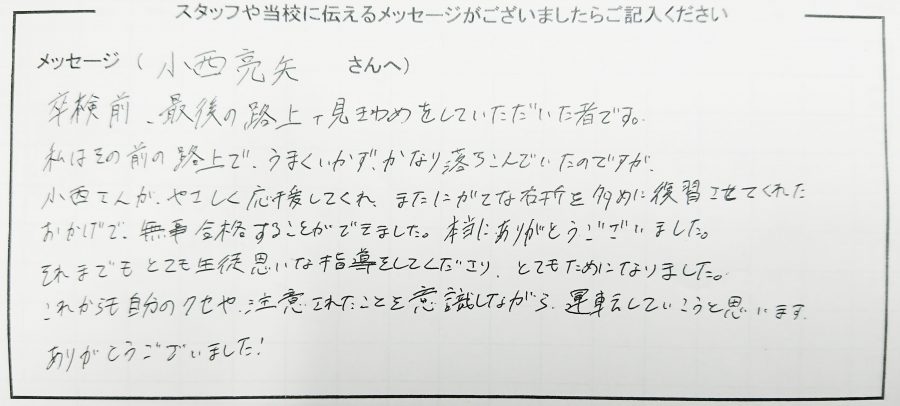 スタッフや当校に伝えるメッセージがございましたらご記入ください
メッセージ ( 小西亮矢 さんへ)
卒検前、最後の路上で見きわめをしていただいた者です。
私はその前の路上で、うまくいかず、かなり落ちこんでいたのですが、
小西さんが、やさしく応援してくれ、またにがてな右折を多めに復習させてくれた
おかげで、無事合格することができました。本当にありがとうございました。
それまでもとても生徒思いな指導をしてくださり、とてもためになりました。
これからも自分のクセや、注意されたことを意識しながら、運転していこうと思います。
ありがとうございました!